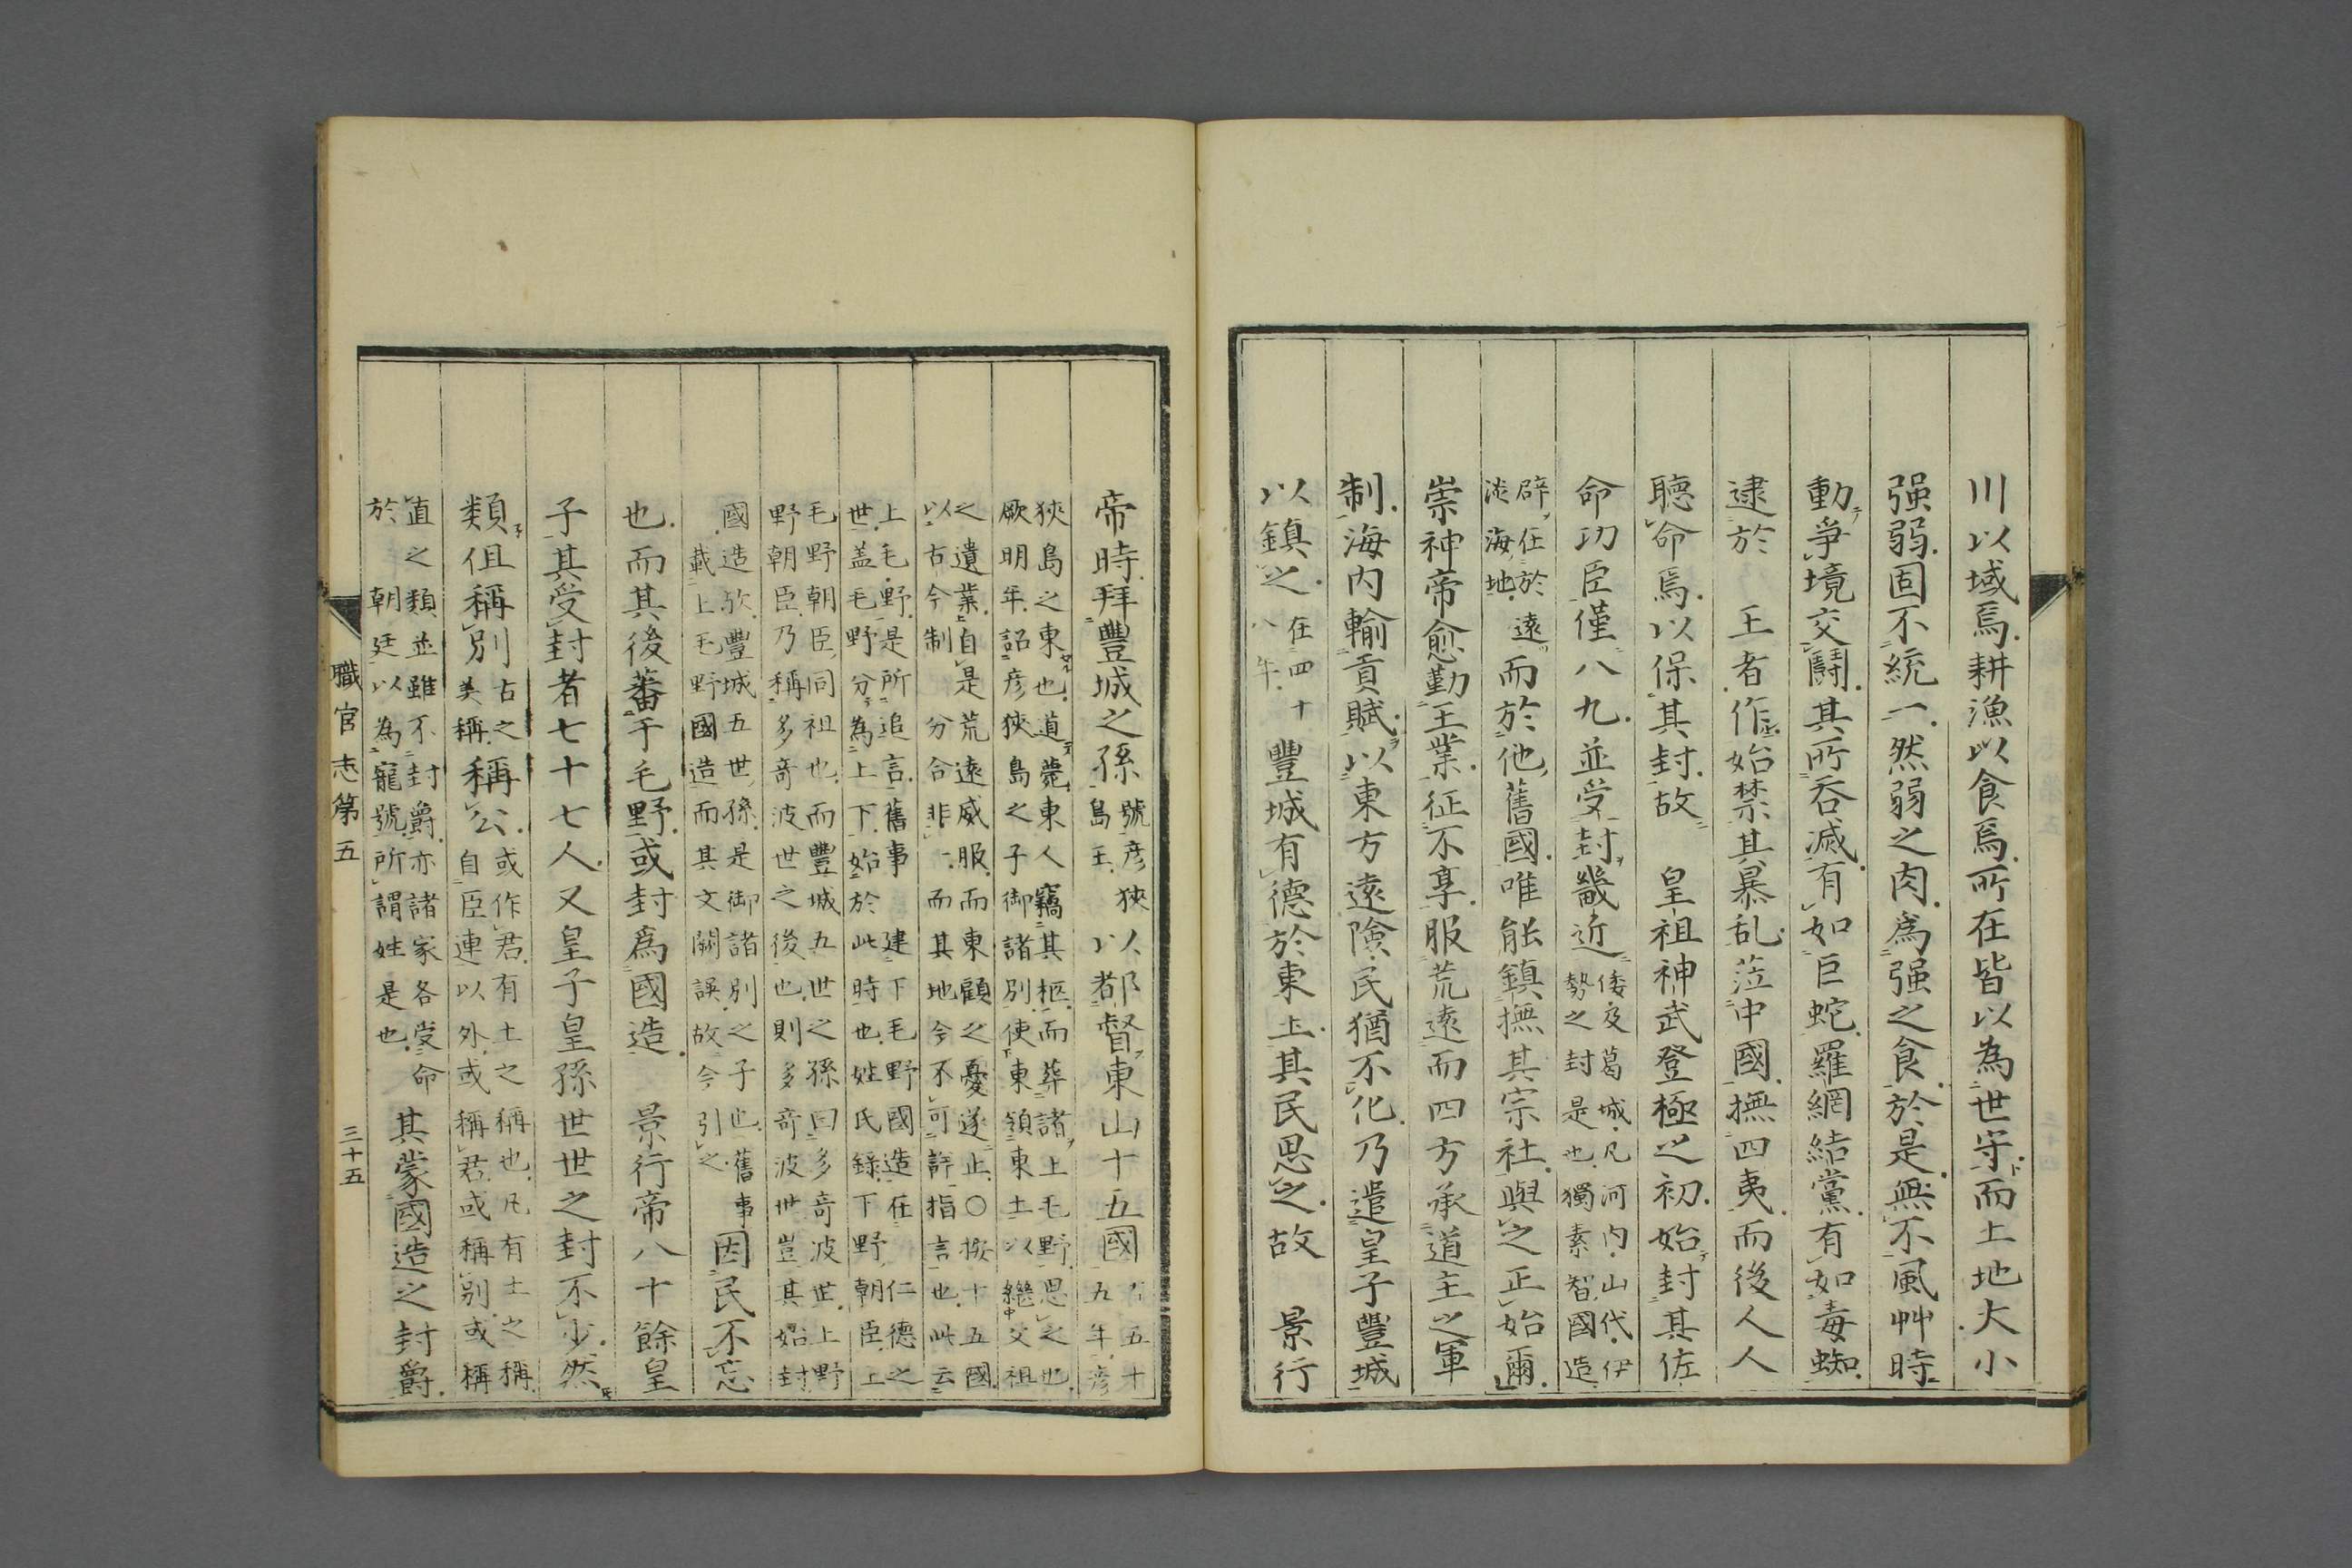 川以域焉耕漁以食焉所在皆以為世守而土地大小
强弱固不統一然弱之肉為强之食於是無不風艸時
動爭境交鬪其所呑滅有如巨蛇羅網結黨有如毒蜘
逮於　王者作始禁其暴乱莅中國撫四夷而後人人
聽命焉以保其封故　皇祖神武登極之初始封其佐
命功臣僅八九並受封畿近
倭及葛城凡河内山代伊
勢之封是也獨素智國造
辟在於遠
淡海地
而於他舊國唯能鎮撫其宗社與之正始爾
崇神帝愈勤王業征不享服荒遠而四方承道主之軍
制海内輸貢賦以東方遠險民猶不化乃遣皇子豐城
以鎮之
在四十
八年
豐城有德於東土其民思之故　景行
帝時拜豐城之孫
號彦狹
島王
以都督東山十五國
五十
五年彦
狹島之東也道薨東人竊其柩而葬諸上毛野思之也
厥明年詔彦狹島之子御諸別使東領東土以繼父祖
之遺業自是荒遠威服而東顧之憂遂止〇按十五國
以古今制分合非一而其地今不可詳指言也此云
上毛野是所追言舊事建下毛野國造在仁德之
世盖毛野分為上下始於此時也姓氏錄下野朝臣上
毛野朝臣同祖也而豐城五世之孫曰多奇波世上野
野朝臣乃稱多奇波世之後也則多奇波世豈其始封
國造故豐城五世孫是御諸別之子也舊事
載上毛野國造而其文闕誤故今引之
因民不忘
也而其後蕃于毛野或封為國造　景行帝八十餘皇
子其受封者七十七人又皇子皇孫世世之封不少然
類但稱別
古之
美稱
稱公
或作君有土之稱也凡有土之稱
自臣連以外或稱君或稱別或稱
直之類並雖不封爵亦諸家各受命
於　朝廷以為寵號所謂姓是也
其蒙國造之封爵
職官志第五
三十五